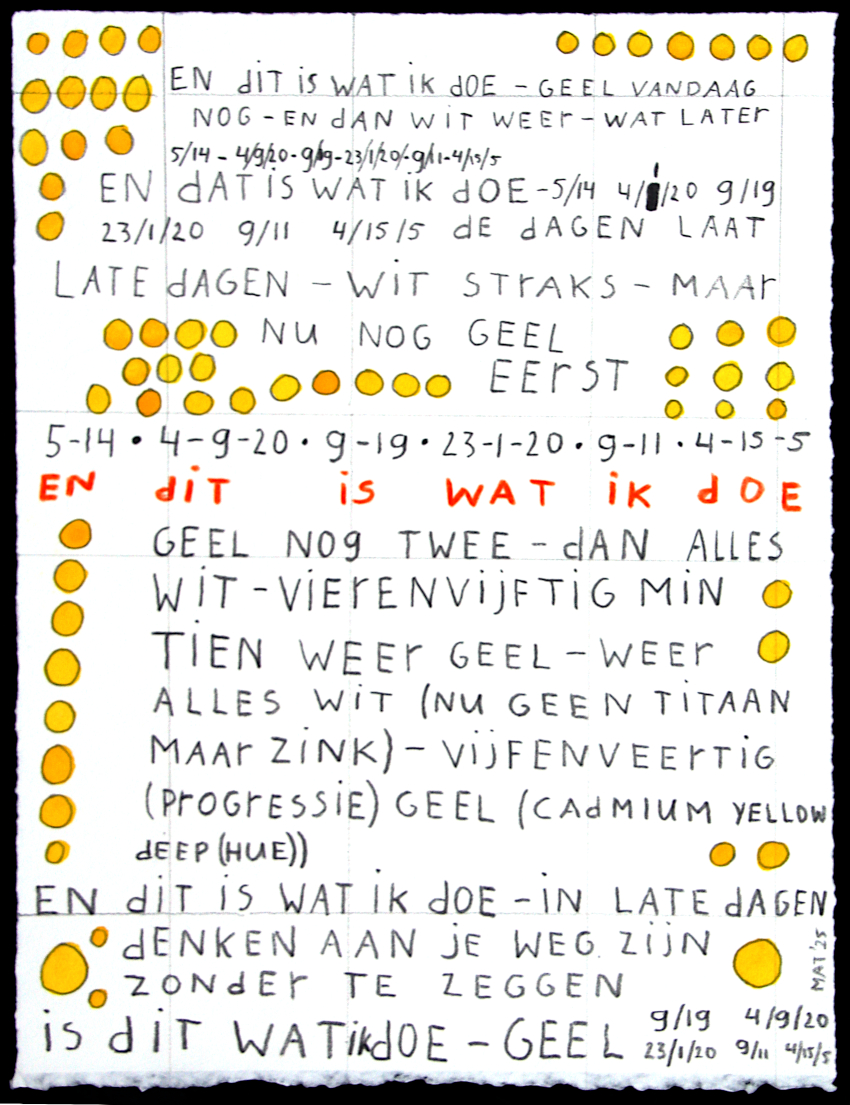 EN diT iS WAT iK dOE - GEEL VANDAAG
NOG - EN dAN WiT WEEr - WAT LATEr
5/14 - 4/9/20 - 9/19 - 23/1/20/- 9/11 - 4/15/5
EN dAT iS WAT iK dOE - 5/14 4/ /20 9/19
23/1/20 9/11 4/15/5 dE dAGEN LAAT
LATE dAGEN - WiT STrAKS - MAAr
NU NOG GEEL
EErST
5-14 • 4-9-20 • 9-19 • 23-1-20 • 9-11 • 4-15-5
EN diT iS WAT iK dOE
GEEL NOg TWEE - dAN ALLES
WiT - ViErENVijFTiG MiN
TiEN WEEr GEEL - WEEr
ALLES WiT (NU GEEN TiTAAN
MAAr ZiNK) - VijFENVEErTiG
(PrOGrESSiE) GEEL (CAdMIUM YELLOW
dEEP (HUE))
EN diT iS WAT iK dOE - iN LATE dAGEN
dENKEN AAN jE WEG ZijN
ZONdEr TE ZEGGEN
iS diT WAT ik dOE - GEEL
9/19 4/9/20
23/1/20 9/11 4/15/5
MAT '25